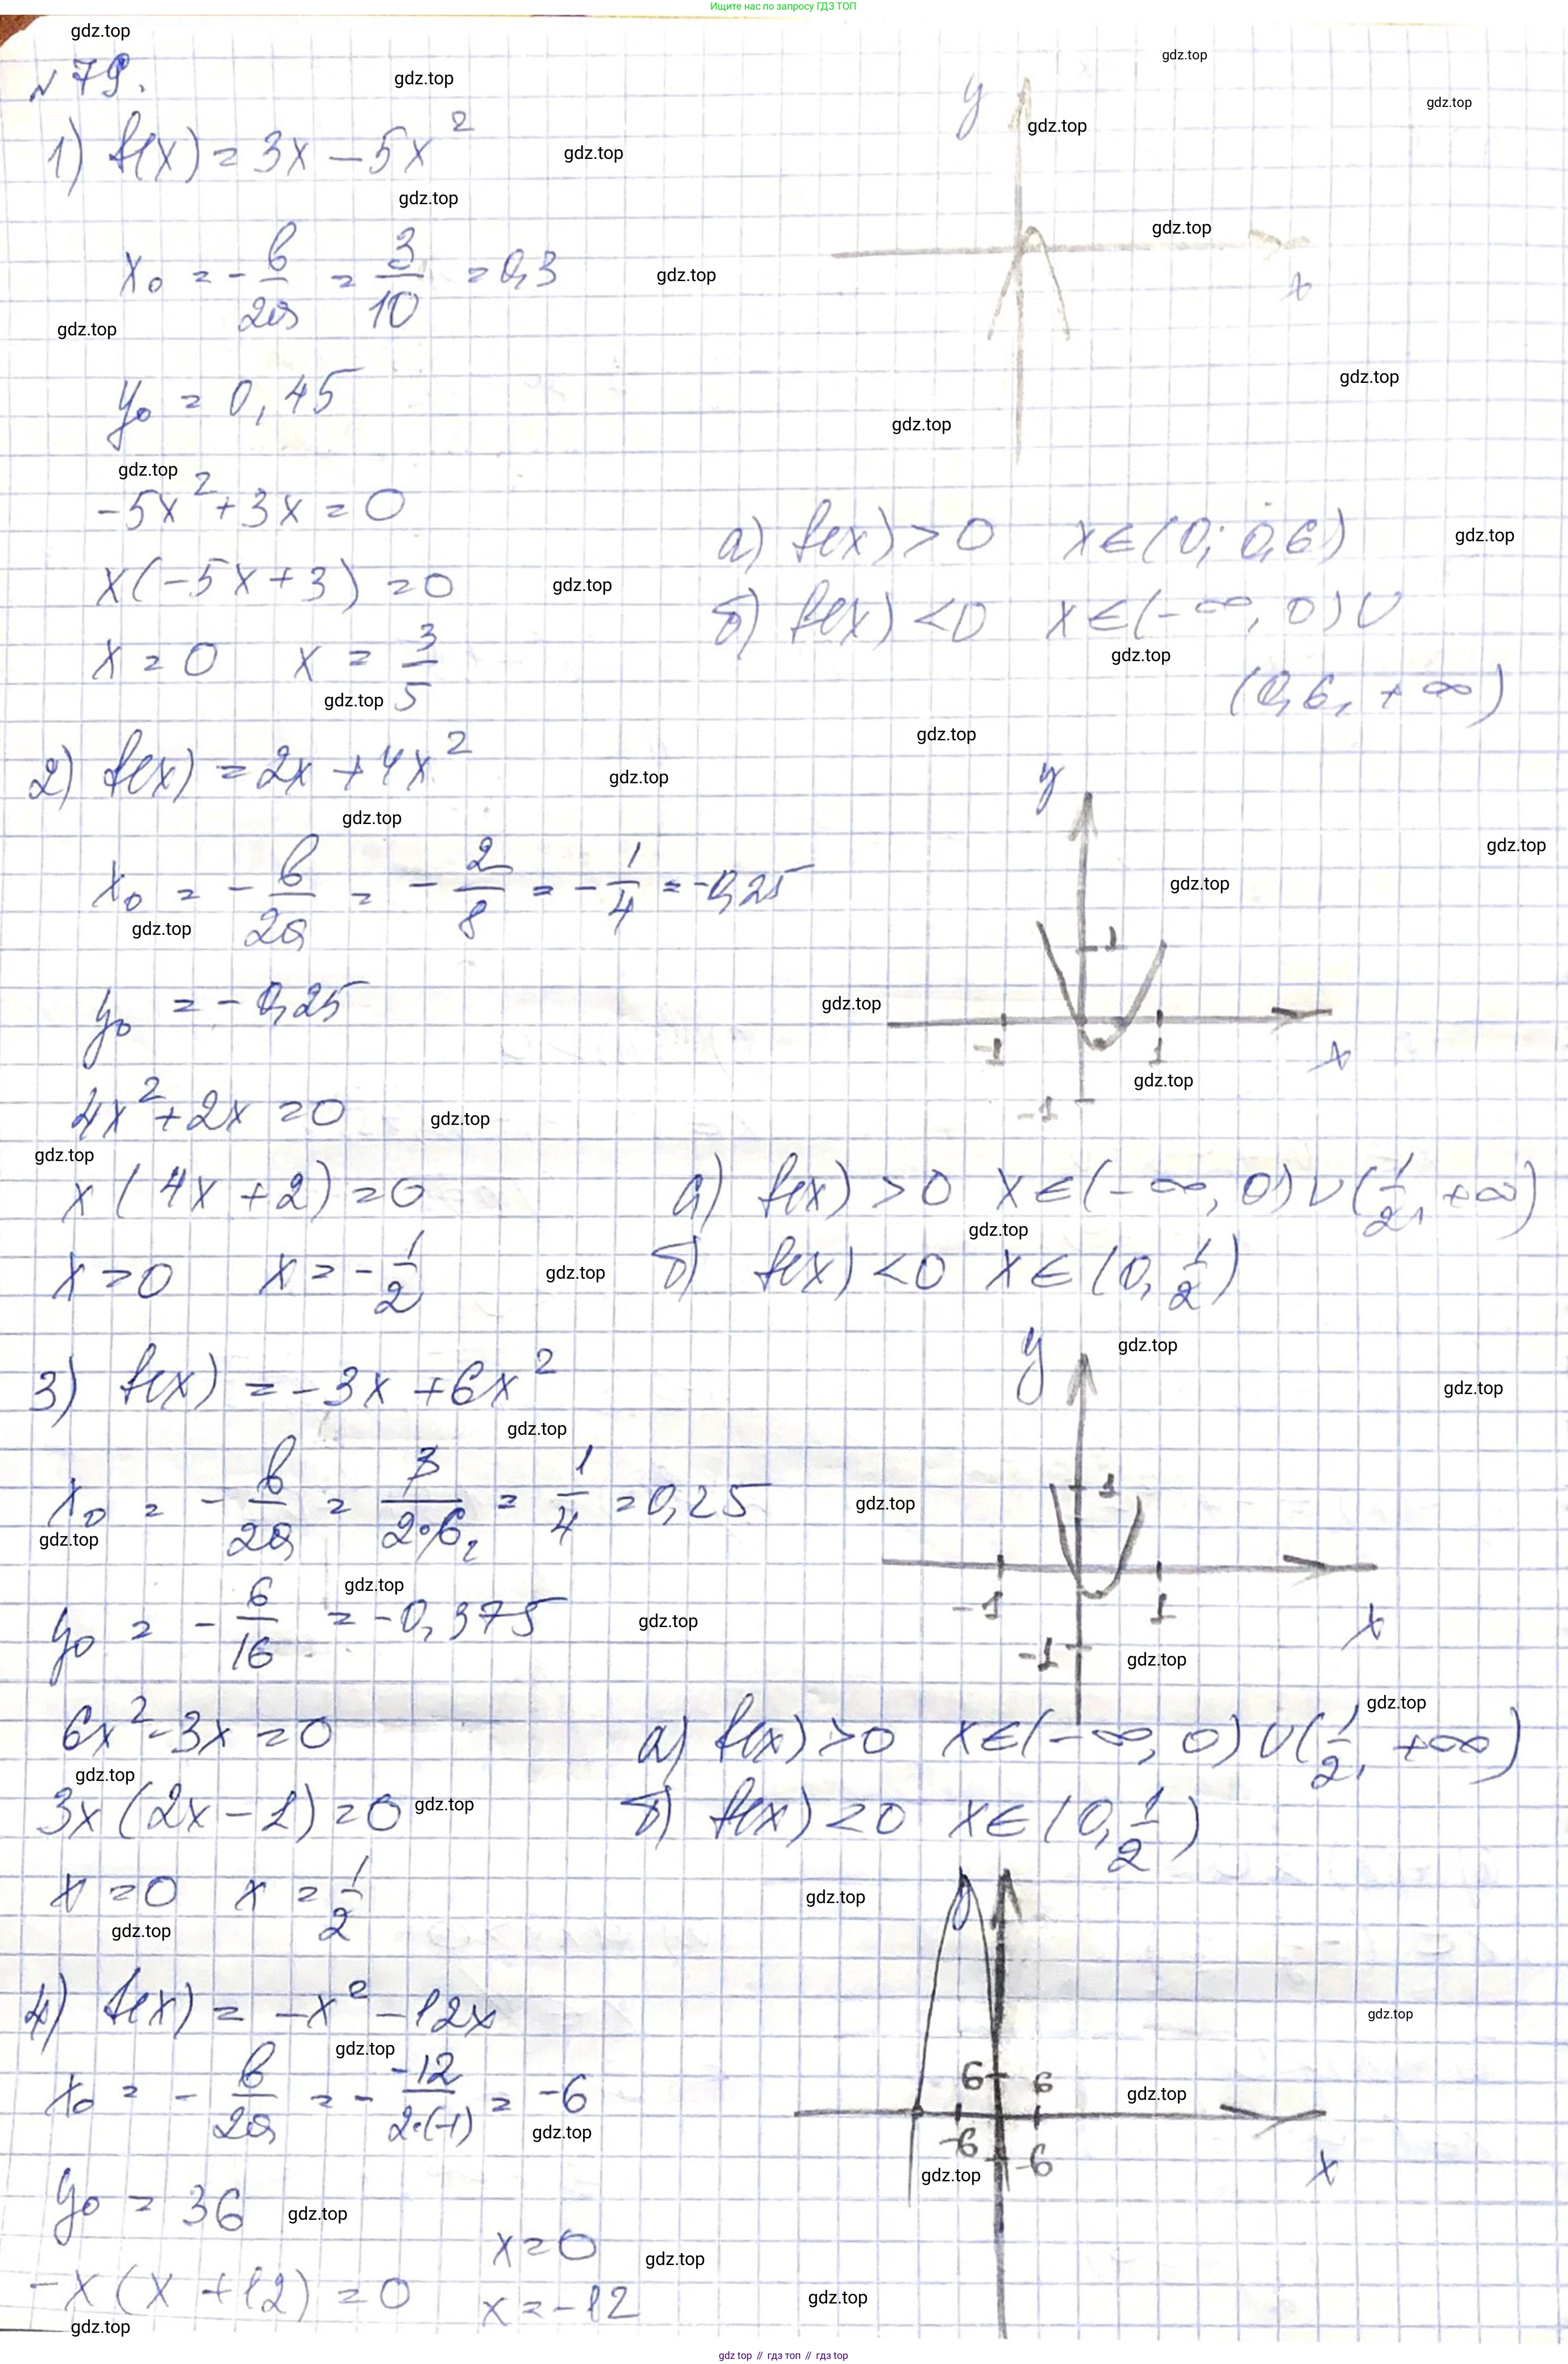 Ищите нас по запросу ГДЗ ТОП
gdz.top
№ 79.
1) f(x) = 3x − 5x²
x₀ = −в/2а = 3/10 = 0,3
y₀ = 0,45
−5x² + 3x = 0
x(−5x + 3) = 0
x = 0 x = 3/5
y
x
а) f(x) > 0 x∈(0; 0,6)
б) f(x) < 0 x∈(−∞, 0) ∪
(0,6, +∞)
2) f(x) = 2x + 4x²
x₀ = −в/2а = −2/8 = −1/4 = −0,25
y₀ = −0,25
4x² + 2x = 0
x(4x + 2) = 0
x = 0 x = −1/2
y
1
−1 1
x
−1
а) f(x) > 0 x∈(−∞, 0) ∪ (1/2, +∞)
б) f(x) < 0 x∈(0, 1/2)
3) f(x) = −3x + 6x²
x₀ = −в/2а = 3/2·6₂ = 1/4 = 0,25
y₀ = −6/16 = −0,375
6x² − 3x = 0
3x(2x − 1) = 0
x = 0 x = 1/2
y
1
−1 1
x
−1
а) f(x) > 0 x∈(−∞, 0) ∪ (1/2, +∞)
б) f(x) < 0 x∈(0, 1/2)
4) f(x) = −x² − 12x
x₀ = −в/2а = −−12/2·(−1) = −6
y₀ = 36
−x(x + 12) = 0
x = 0
x = −12
6 6
−6 −6
x
gdz.top // гдз топ // гдз.top